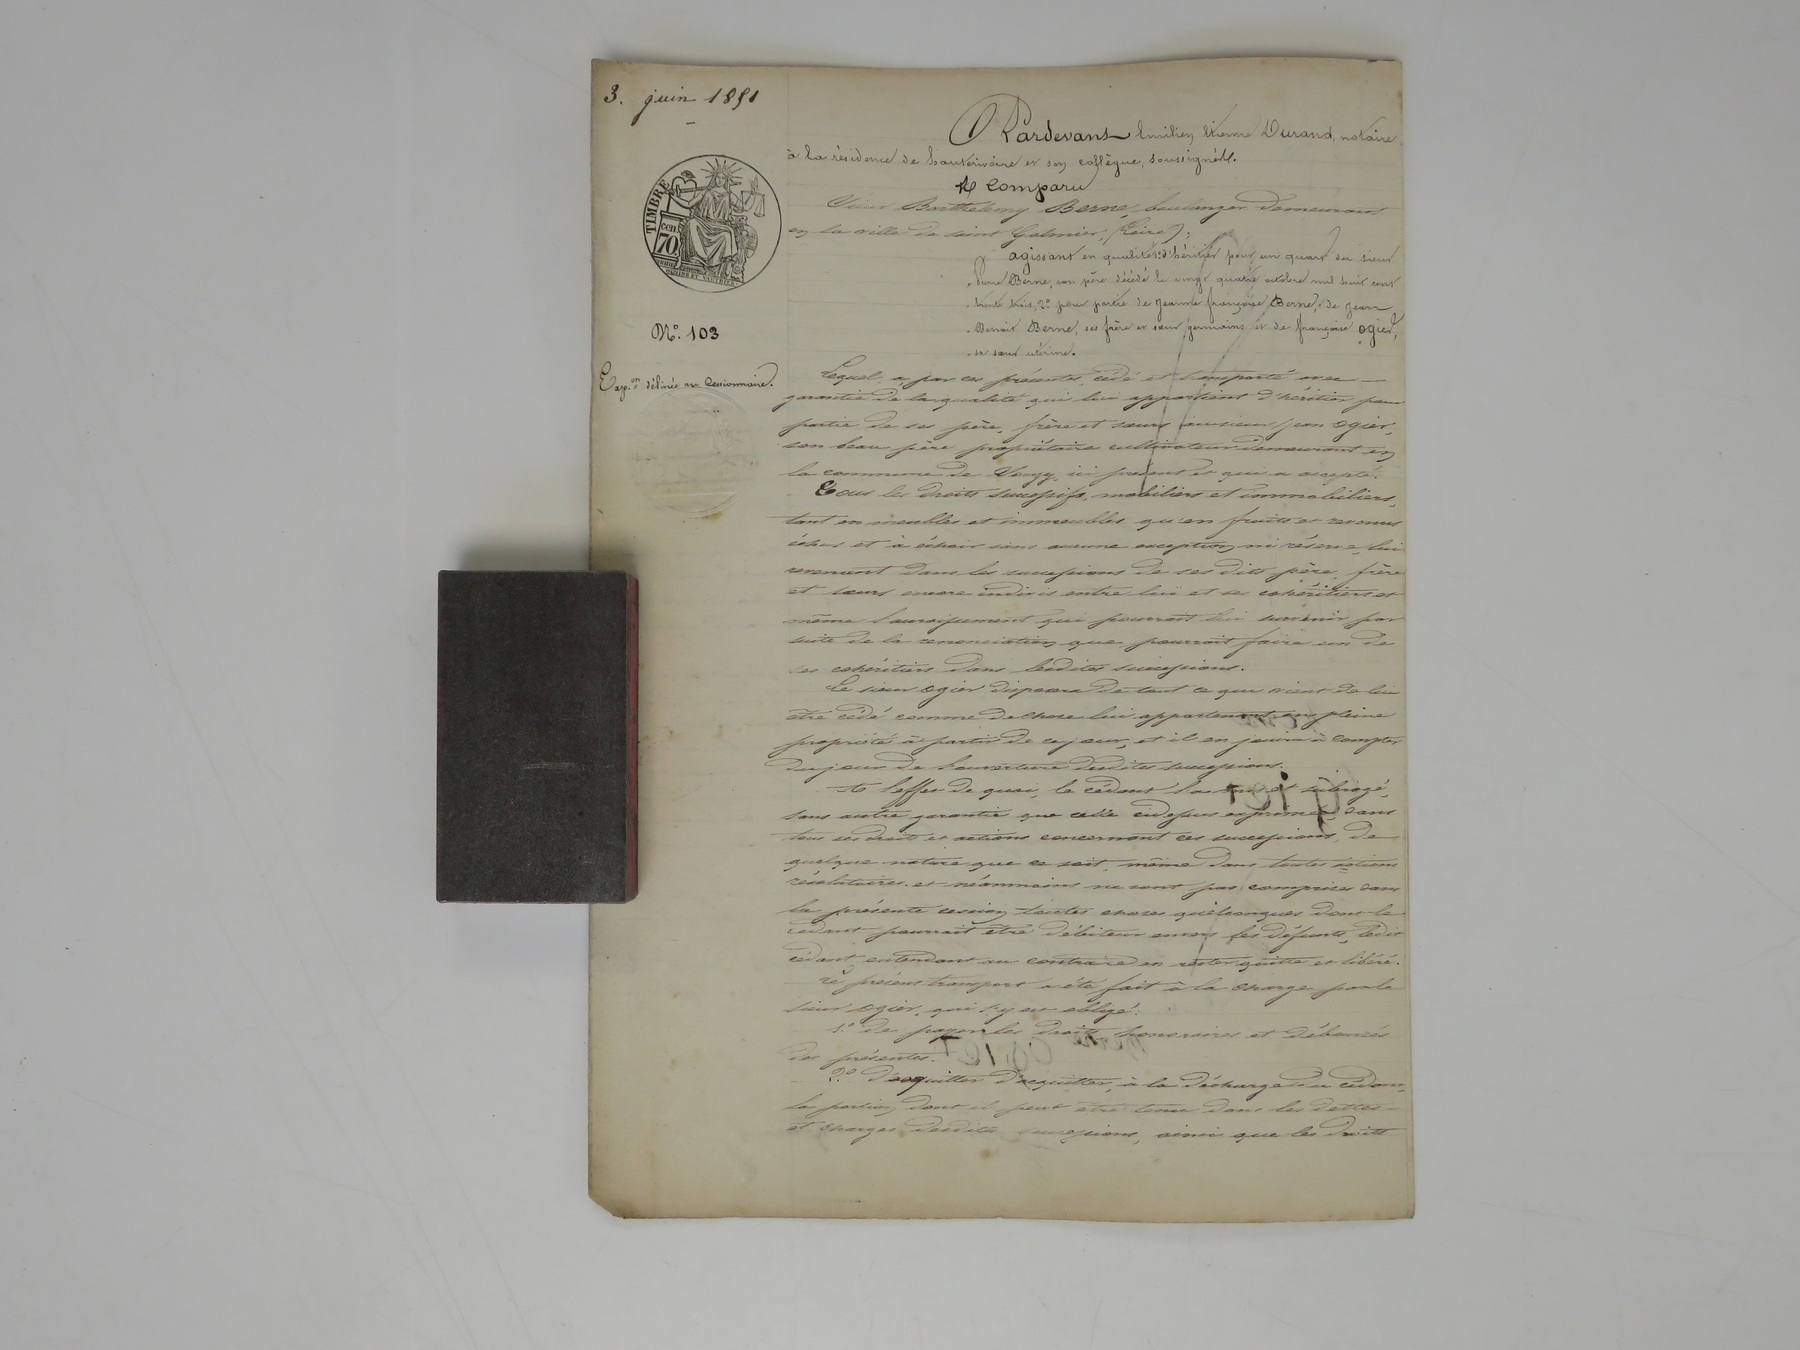 3. juin 1851
Pardevant Emilien Etienne Durand, notaire
à la résidence de hauterivoire et son collègue, soussignés.
A Comparu
TIMBRE
cen
70
Sieur Barthélemy Berne, boulanger demeurant
en la ville de saint Galmier, (Loire);
agissant en qualité 1º d'héritier pour un quart du sieur
Pierre Berne, son père décédé le vingt quatre octobre mil huit cent
trente trois, 2º pour partie de Jeanne françoise Berne, de Jean
Benoit Berne, ses frère et sœur germains et de françoise ogier,
sa sœur utérine.
Nº. 103
Exp.on délivrée au Cessionnaire.
Lequel a, par ces présentes, cédé et transporté avec
garantie de la qualité qui lui appartient d'héritier pour
partie de ses père, frère et sœurs au sieur Jean ogier,
son beau père propriétaire cultivateur demeurant en
la commune de ici présent et qui a accepté.
Tous les droits successifs, mobiliers et immobiliers,
tant en meubles et immeubles qu'en fruits et revenus
échus et à échoir sans aucune exception ni réserve, lui
revenant dans les successions de ses dits père, frère
et sœurs encore indivis entre lui et ses cohéritiers et
même l'accroissement qui pourrait lui survenir par
suite de la renonciation que pourrait faire un de
ses cohéritiers dans lesdites successions.
Le sieur ogier disposera de tout ce qui vient de lui
être cédé comme de chose lui appartenant en pleine
propriété à partir de ce jour, et il en jouira à compter
du jour de l'ouverture desdites successions.
A l'effet de quoi, le cédant l'a mis et subrogé,
sans autre garantie que celle cidessus exprimée dans
tous ses droits et actions concernant ces successions, de
quelque nature que ce soit, même dans toutes actions
résolutoires. et néanmoins ne sont pas comprises dans
la présente cession toutes choses quelconques dont le
cédant pourrait être débiteur envers les défunts, ledit
cédant entendant au contraire en rester quitte et libéré.
Le présent transport a été fait à la charge par le
sieur ogier, qui s'y est obligé:
1.º de payer les droits, honoraires et déboursés
des présentes.
2.º D'acquitter D'acquitter, à la décharge du cédant,
la portion dont il peut être tenu dans les dettes
et charges desdites successions, ainsi que les droits